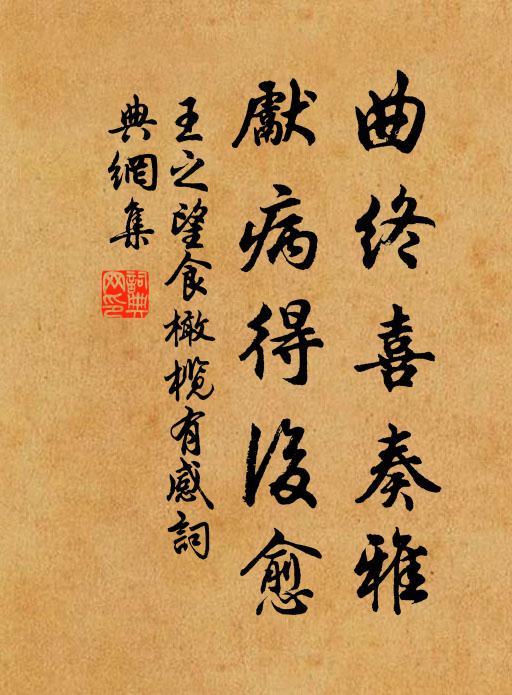 曲終喜奏雅
獻病得後愈
王之望食橄欖有感詞
典網集
詞典
网印